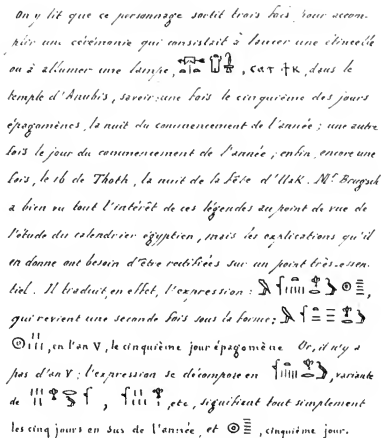 On y lit que ce personnage sortit trois fois pour accom-
plir une cérémonie qui consistait à lancer une étincelle
ou à allumer une lampe, , dans le
temple d'Anubis, savoir: une fois le cinquième des jours
épagomènes, la nuit du commencement de l'année; une autre
fois le jour du commencement de l'année; enfin, encore une
fois, le 18 de Thoth, la nuit de la fête d'Uak. Mr. Brugsch
a bien vu tout l'intérêt de ces légendes au point de vue de
l'étude du calendrier égyptien, mais les explications qu'il
en donne ont besoin d'être rectifiées sur un point très-essen-
tiel. Il traduit, en effet, l'expression:
qui revient une seconde fois sous la forme:
, en l'an V, le cinquième jour épagomène Or, il n'y a
pas d'an V; l'expression se décompose en , variante
de , , etc, signifiant tout simplement
les cinq jours en sus de l'année, et , cinquième jour.